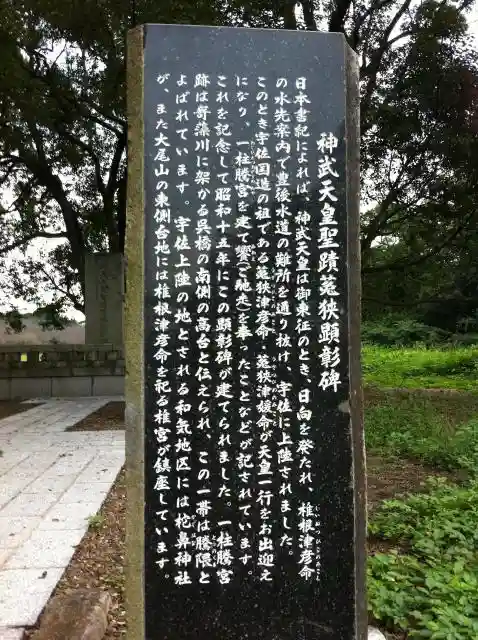 神武天皇聖蹟菟狭顕彰碑
日本書紀によれば、神武天皇は御東征のとき、日向を発たれ、椎根津彦命
の水先案内で豊後水道の難所を通り抜け、宇佐に上陸されました。
このとき宇佐国造の祖である菟狭津彦命・菟狭津媛命が天皇一行をお出迎え
になり、一柱騰宮を建て饗(ご馳走)を奉ったことなどが記されています。
これを記念して昭和十五年にこの顕彰碑が建てられました。一柱騰宮
跡は寄藻川に架かる呉橋の南側の高台と伝えられ、この一帯は騰隈と
よばれています。宇佐上陸の地とされる和気地区には柁鼻神社
が、また大尾山の東側台地には椎根津彦命を祀る椎宮が鎮座しています。